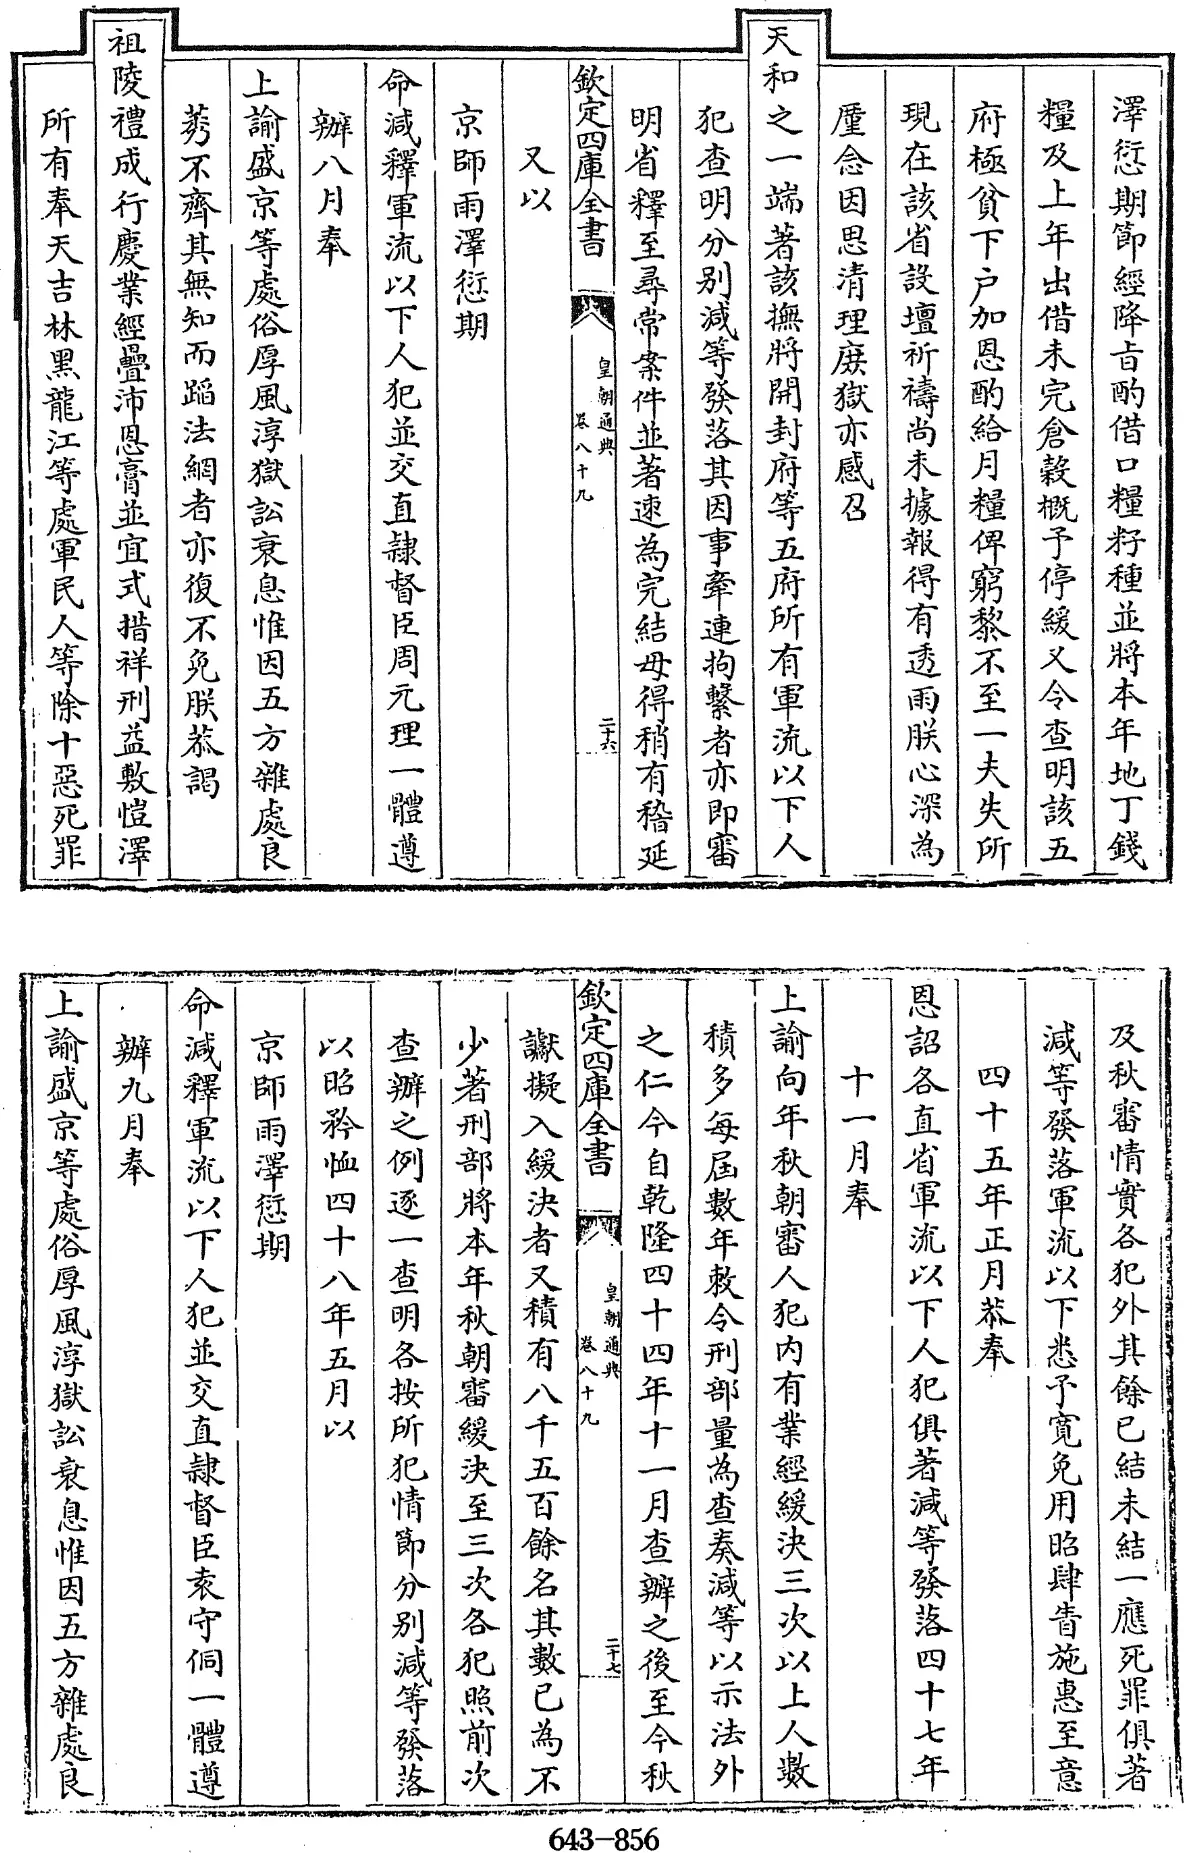 澤愆期節經降旨酌借口糧籽種並將本年地丁錢
糧及上年出借未完倉穀概予停緩又令查明該五
府極貧下户加恩酌給月糧俾窮黎不至一夫失所
現在該省設壇祈禱尚未據報得有透雨朕心深為
廑念因思清理庶獄亦感召
天和之一端著該撫將開封府等五府所有軍流以下人
犯查明分别減等發落其因事牽連拘繫者亦即審
明省釋至尋常案件並著速為完結毋得稍有稽延
欽定四庫全書
皇朝通典
卷八十九
二十六
又以
京師雨澤愆期
命減釋軍流以下人犯並交直隸督臣周元理一體遵
辦八月奉
上諭盛京等處俗厚風淳獄訟衰息惟因五方雜處良
莠不齊其無知而蹈法網者亦復不免朕恭謁
祖陵禮成行慶業經疊沛恩膏並宜式措祥刑益敷愷澤
所有奉天吉林黑龍江等處軍民人等除十惡死罪
及秋審情實各犯外其餘已結未結一應死罪俱著
減等發落軍流以下悉予寬免用昭肆眚施惠至意
四十五年正月恭奉
恩詔各直省軍流以下人犯俱著減等發落四十七年
十一月奉
上諭向年秋朝審人犯内有業經緩決三次以上人數
積多每屆數年敕令刑部量為查奏減等以示法外
之仁今自乾隆四十四年十一月查辦之後至今秋
欽定四庫全書
皇朝通典
卷八十九
二十七
讞擬入緩決者又積有八千五百餘名其數已為不
少著刑部將本年秋朝審緩決至三次各犯照前次
查辦之例逐一查明各按所犯情節分别減等發落
以昭矜恤四十八年五月以
京師雨澤愆期
命減釋軍流以下人犯並交直隸督臣袁守侗一體遵
辦九月奉
上諭盛京等處俗厚風淳獄訟衰息惟因五方雜處良
643-856